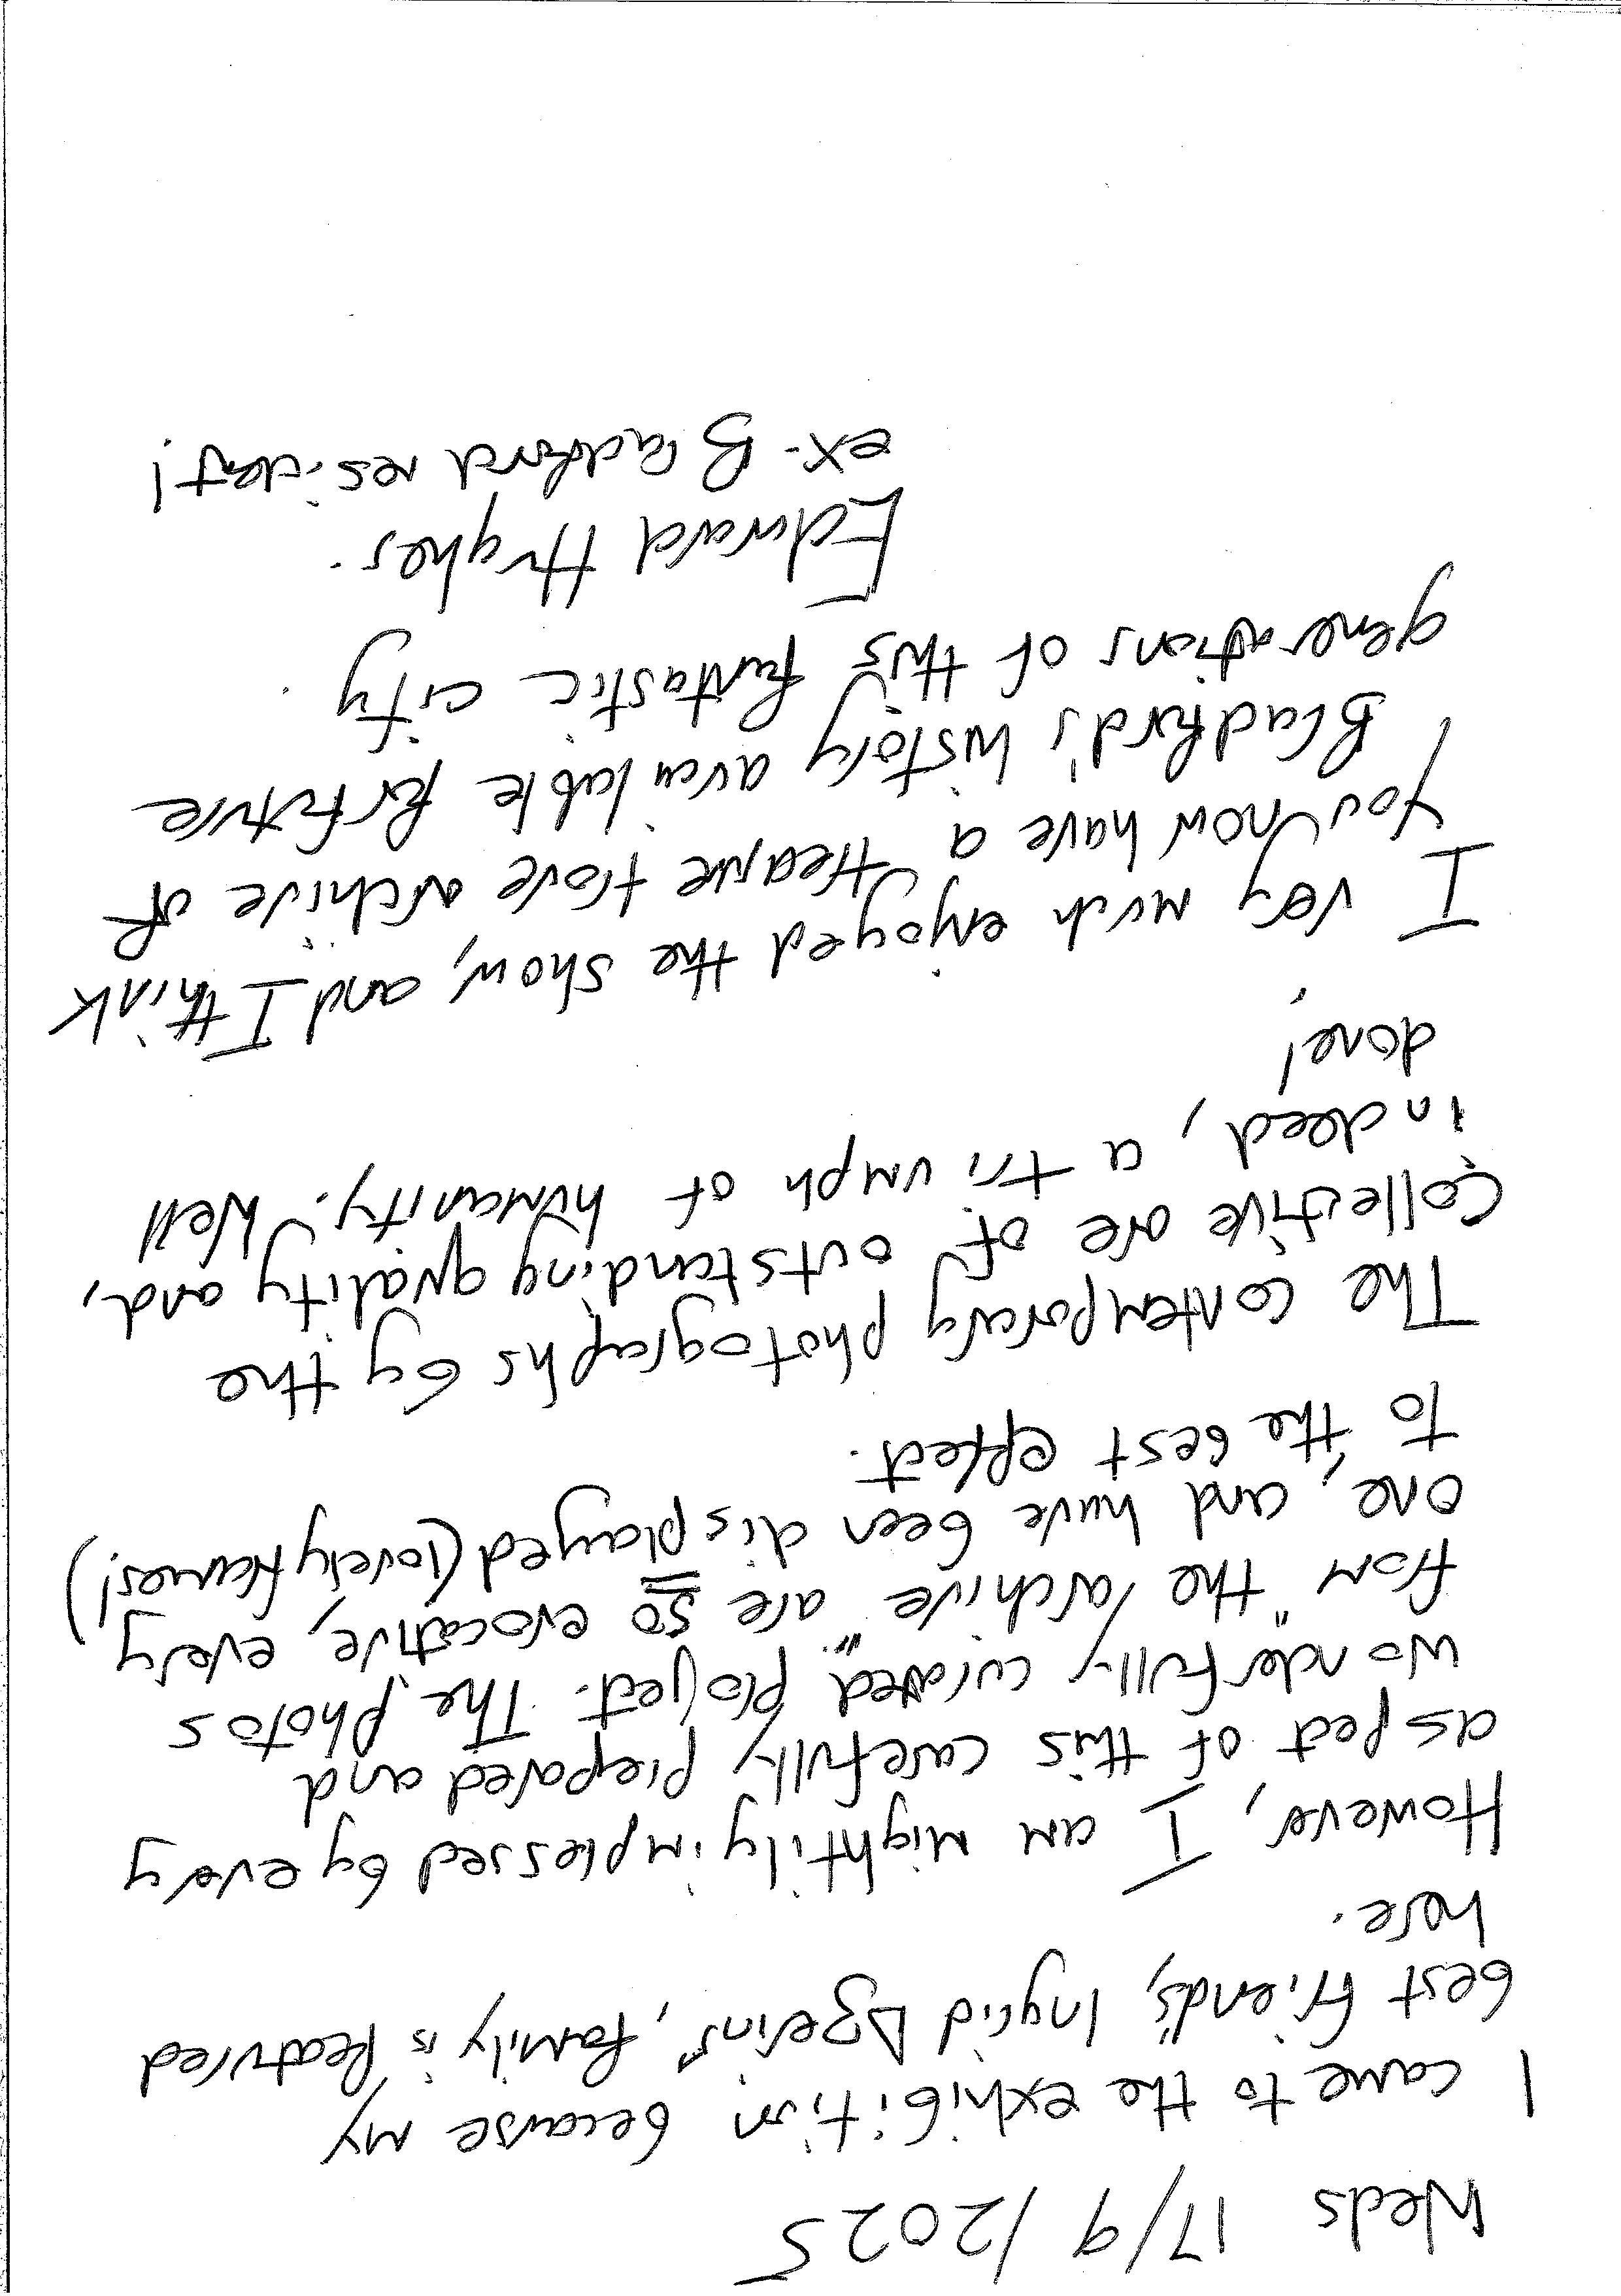 Weds 17/9/2025
I came to the exhibition because my
best friend's, Ingrid Dzerins', family is featured
here.
However, I am mightily impressed by every
aspect of this carefully prepared and
wonderfully curated project. The photos
from "the archive" are so evocative, every
one, and have been displayed (lovely frames!)
to the best effect.
The contemporary photographs by the
Collective are of outstanding quality and,
indeed, a triumph of humanity. Well
done!
I very much enjoyed the show, and I think
you now have a treasure trove archive of
Bradford's history available for future
generations of this fantastic city.
Edward Hughes.
ex-Bradford resident!